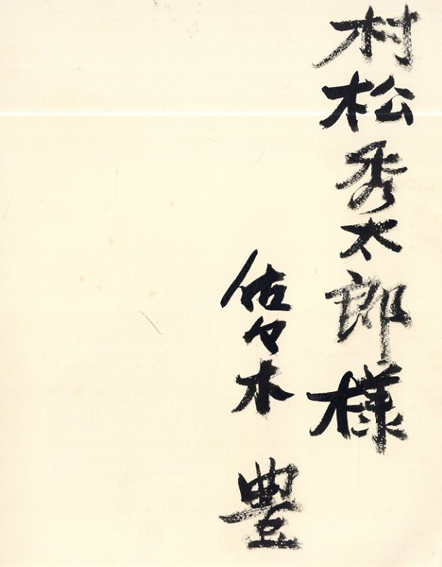 村松秀太郎様
佐々木豊